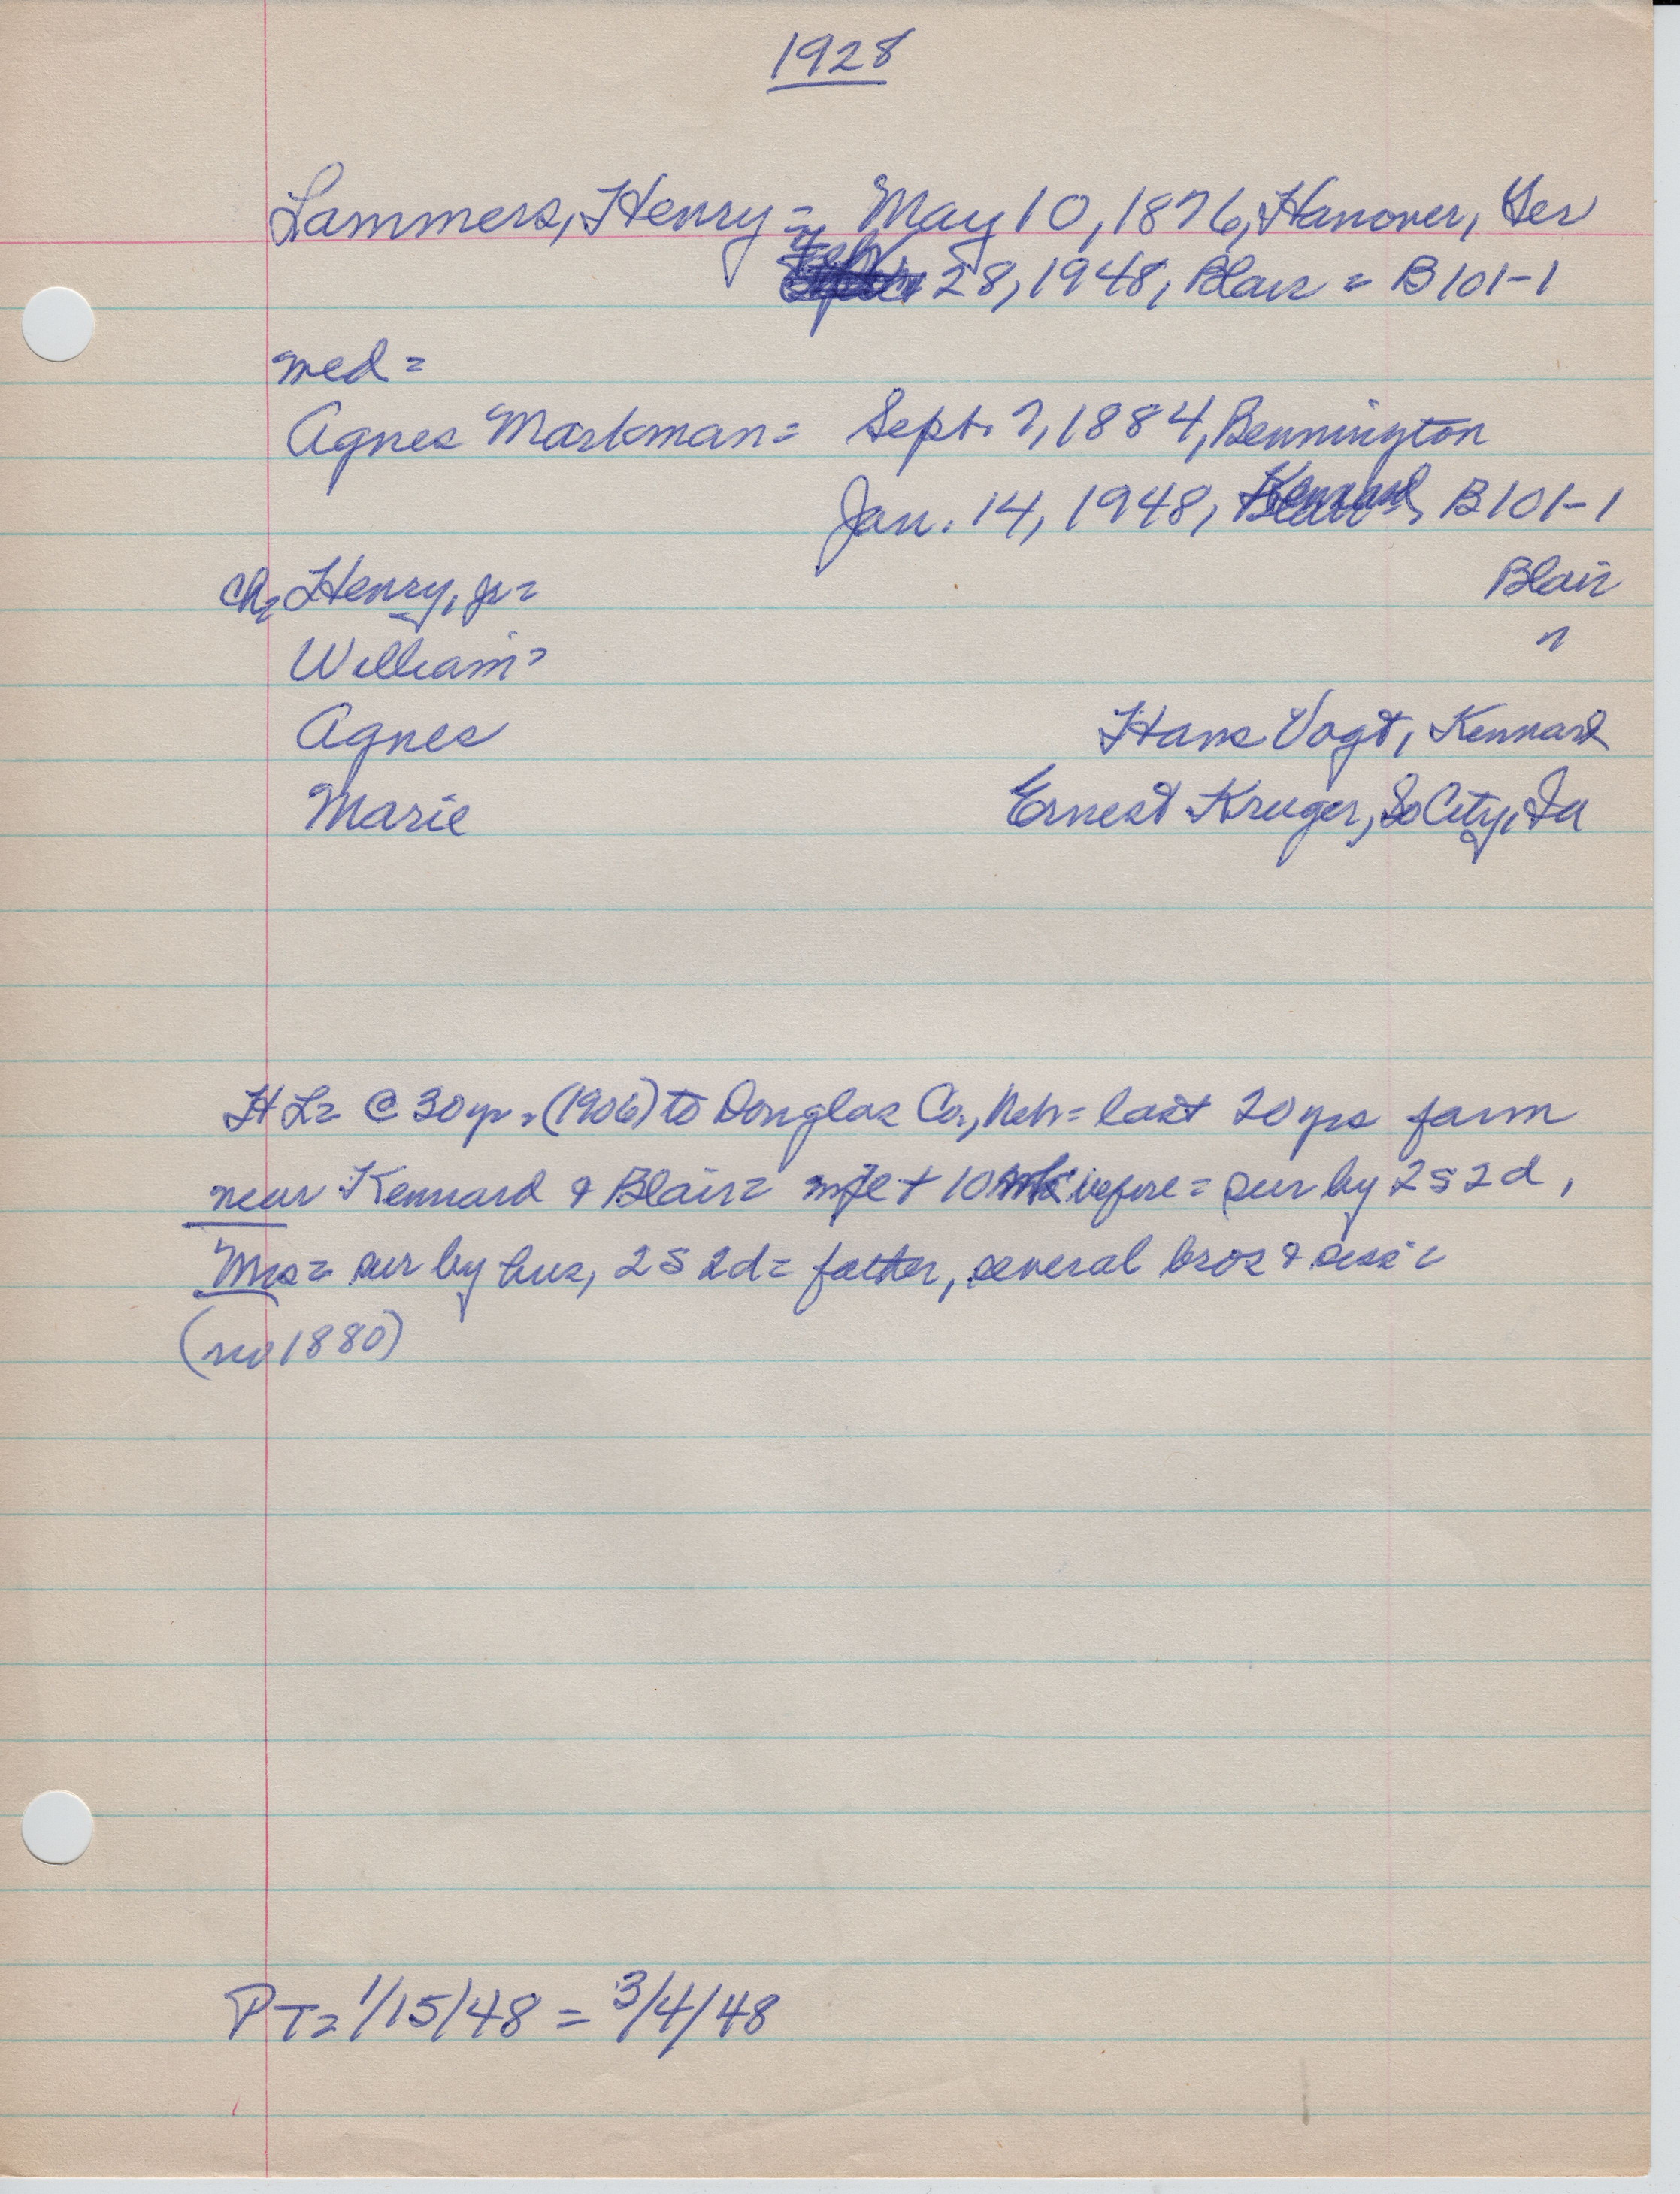 1928
Lammers, Henry = May 10, 1876, Hanover, Ger
Feb 28, 1948, Blair = B101-1
med =
Agnes Markman = Sept. 7, 1884, Bennington
Jan. 14, 1948, Kennard B101-1
ch= Henry, Jr= Blair
William= "
Agnes Hans Vogt, Kennard
Marie Ernest Kruger, So City, Ia
H L= @ 30 yr = (1906) to Douglas Co., Neb = last 20 yrs farm
near Kennard & Blair = + 10 before = sur by 2 s 2 d,
Mrs = sur by hus, 2 s 2 d = father, several bros & sis =
(no 1880)
PT= 1/15/48 = 3/4/48